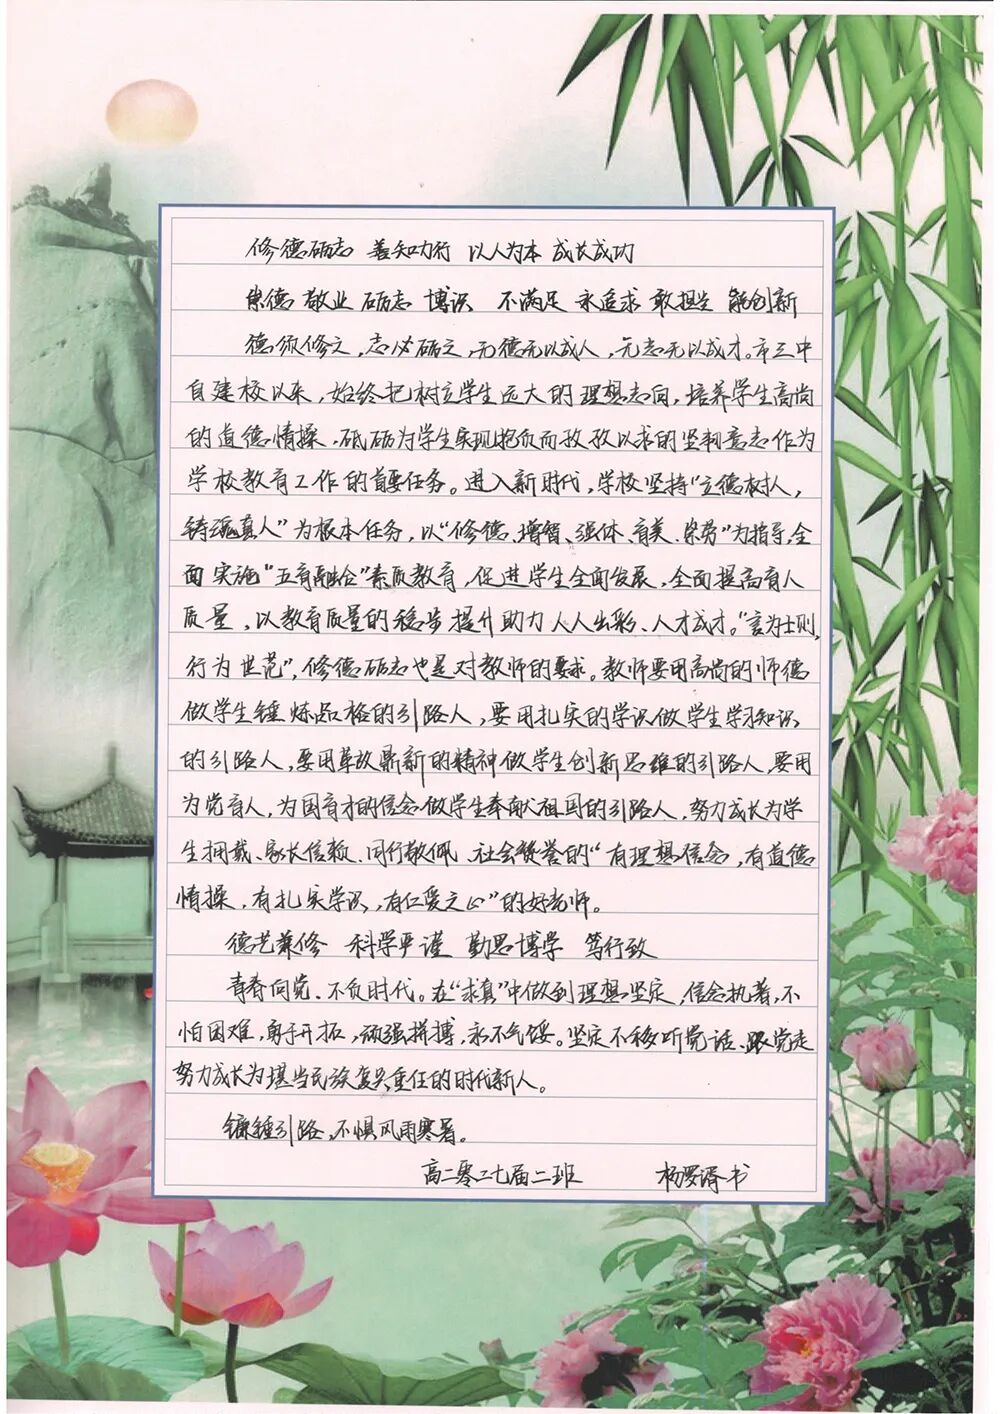 修德砺志 善知力行 以人为本 成长成功
崇德 敬业 砺志 博识 不满足 永追求 敢担当 能创新
德须修之,志必砺之,无德无以成人,无志无以成才。市三中
自建校以来,始终把树立学生远大的理想志向,培养学生高尚
的道德情操、砥砺为学生实现抱负而孜孜以求的坚韧意志作为
学校教育工作的首要任务。进入新时代,学校坚持“立德树人,
铸魂真人”为根本任务,以“修德、增智、强体、育美、崇劳”为指导,全
面实施“五育融合”素质教育,促进学生全面发展,全面提高育人
质量,以教育质量的稳步提升助力人人出彩、人才成才。“言为士则,
行为世范”,修德砺志也是对教师的要求。教师要用高尚的师德
做学生锤炼品格的引路人,要用扎实的学识做学生学习知识
的引路人,要用革故鼎新的精神做学生创新思维的引路人,要用
为党育人,为国育才的信念做学生奉献祖国的引路人,努力成长为学
生拥戴、家长信赖、同行敬佩、社会赞誉的“有理想信念,有道德
情操,有扎实学识,有仁爱之心”的好老师。
德艺兼修 科学严谨 勤思博学 笃行致
青春向党、不负时代。在“求真”中做到理想坚定,信念执着,不
怕困难,勇于开拓,顽强拼搏,永不气馁。坚定不移听党话、跟党走
努力成长为堪当民族复兴重任的时代新人。
镰锤引路,不惧风雨寒暑。
高二零二七届二班 杨罗湑书